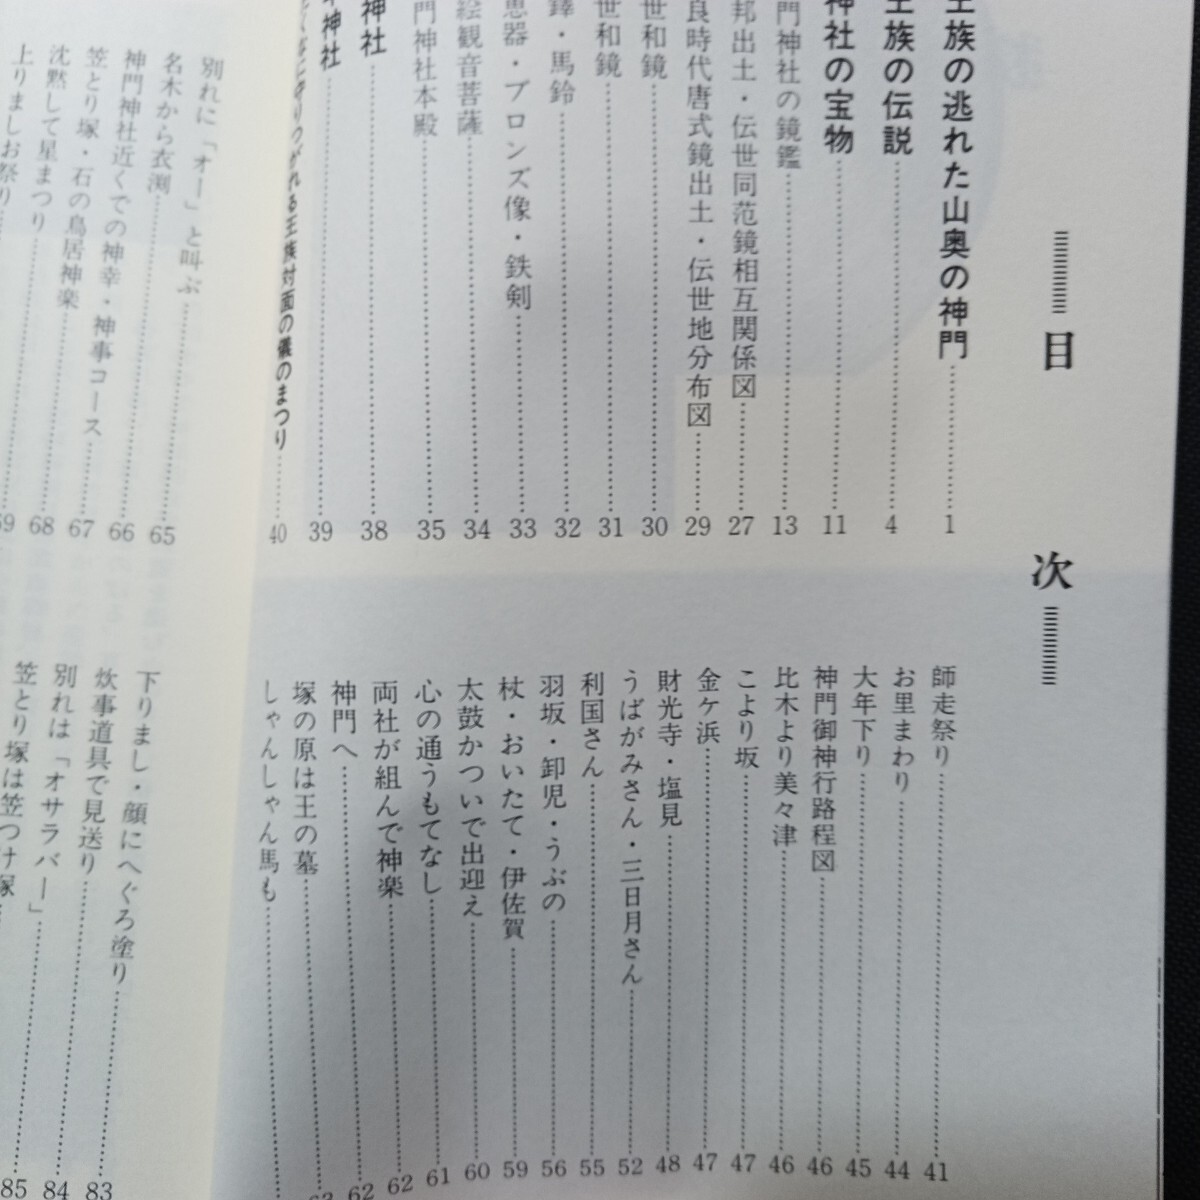 目次
王族の逃れた山奥の神門……1
王族の伝説……4
神社の宝物……11
門神社の鏡鑑……13
邦出土・伝世同范鏡相互関係図……27
良時代唐式鏡出土・伝世地分布図……29
世和鏡……30
世和鏡……31
鐸・馬鈴……32
恵器・ブロンズ像・鉄剣……33
絵観音菩薩……34
門神社本殿……35
神社……38
神社……39
りつがれる王族対面の儀のまつり……40
師走祭り……41
お里まわり……44
大年下り……45
神門御神行路程図……46
比木より美々津……46
こより坂……47
金ケ浜……47
財光寺・塩見……48
うばがみさん・三日月さん……52
利国さん……55
羽坂・卸児・うぶの……56
杖・おいたて・伊佐賀……59
太鼓かついで出迎え……60
心の通うもてなし……61
両社が組んで神楽……62
神門へ……62
塚の原は王の墓……63
しゃんしゃん馬も……
別れに「オー」と叫ぶ……65
名木から衣渕……66
神門神社近くでの神幸・神事コース……67
笠とり塚・石の鳥居神楽……68
沈黙して星まつり……69
上りましお祭り……
下りまし・顔にへぐろ塗り……83
炊事道具で見送り……84
別れは「オサラバー」……85
笠とり塚は笠つけ塚……